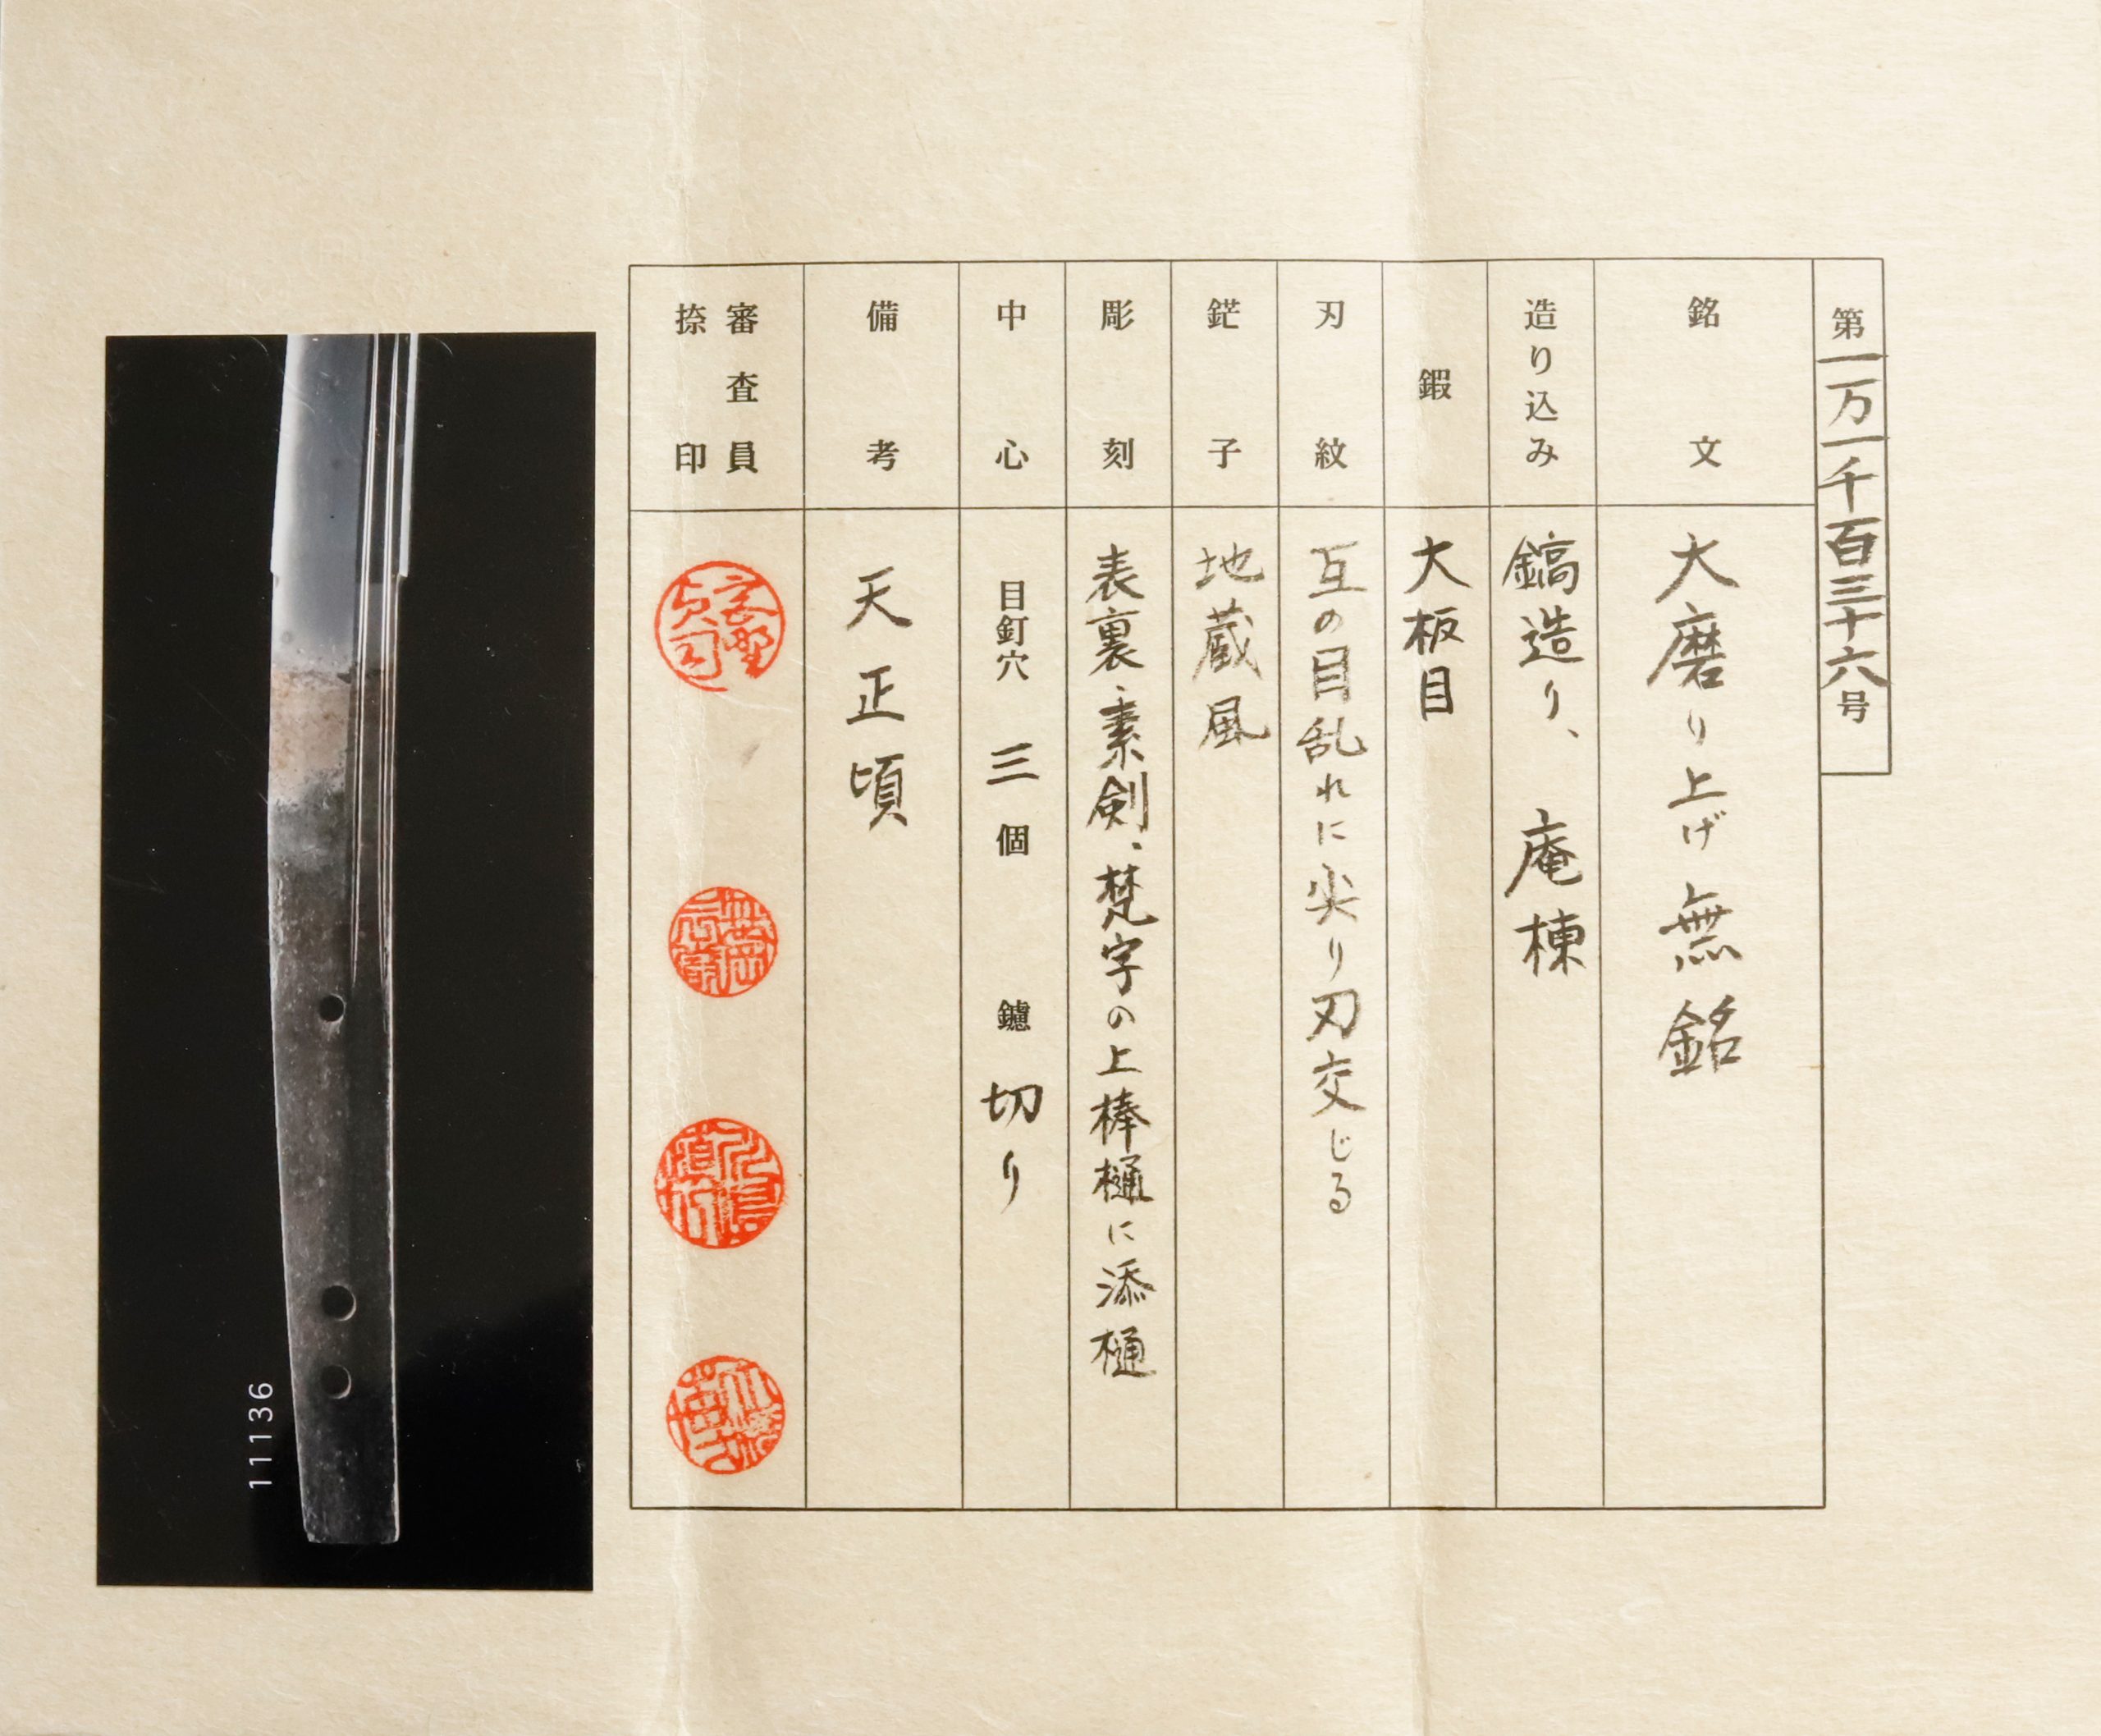 第一万一千百三十六号
銘文
大磨り上げ無銘
造り込み
鎬造り、庵棟
鍜
大板目
刃紋
互の目乱れに尖り刃交じる
鋩子
地蔵風
彫刻
表裏、素剣、梵字の上棒樋に添樋
中心
目釘穴 三 個 鑢 切り
備考
天正頃
審査員
捺印
11136